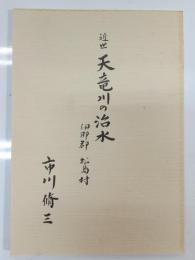 近世
天竜川の治水
伊那郡 松島村
市川脩三